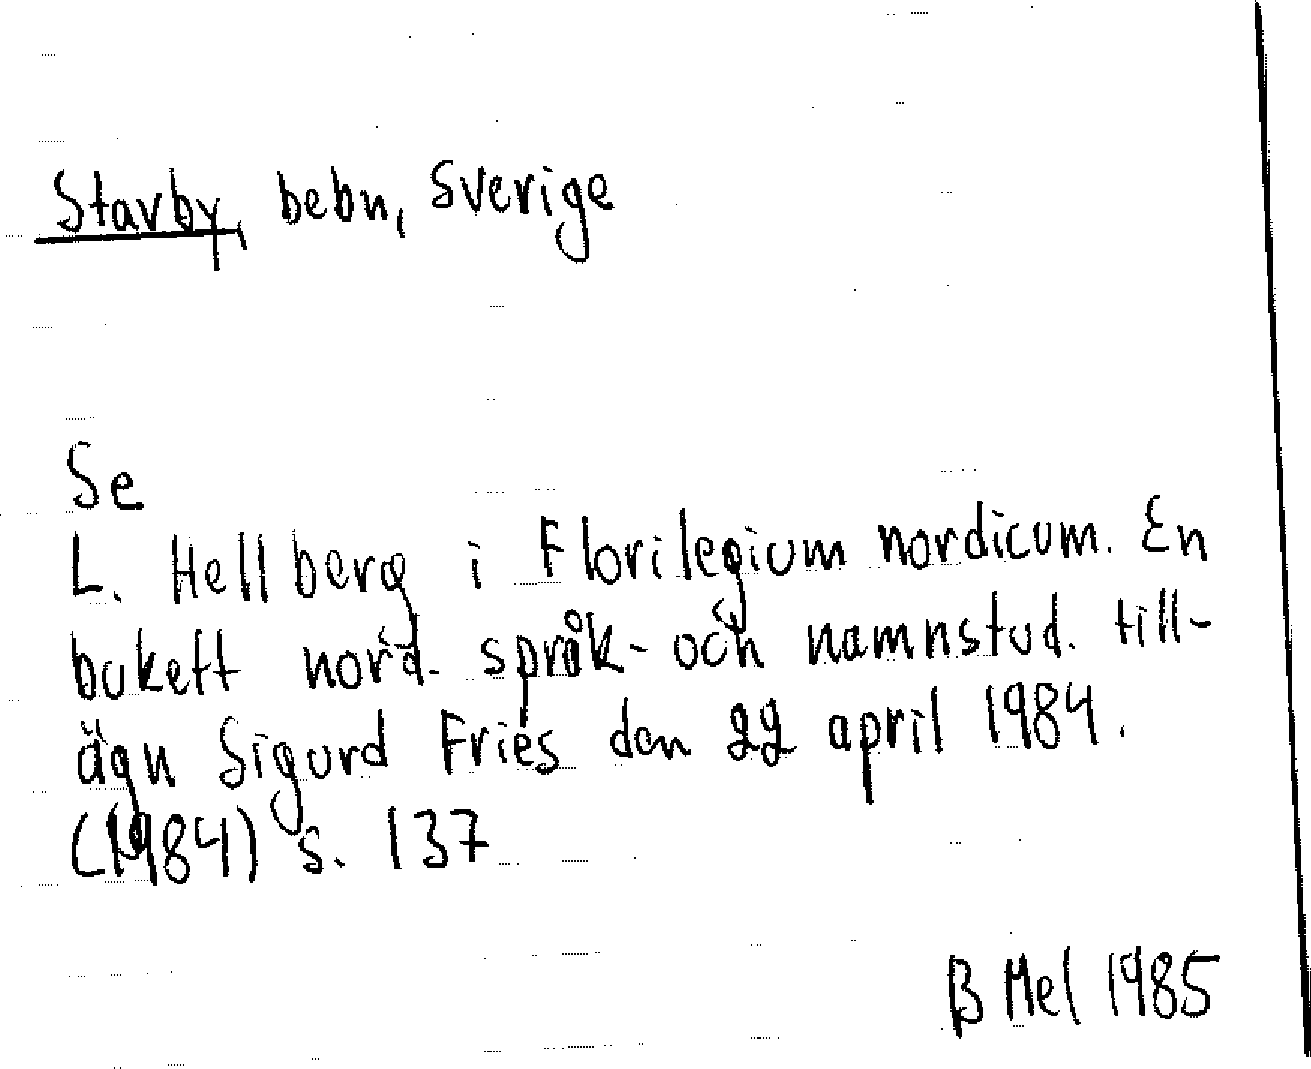 Stavby, bebn, Sverige
Se
L. Hellberg i Florilegium nordicum. En
bukett nord. språk- och namnstud. till-
ägn Sigurd Fries den 22 april 1984.
(1984) s. 137
B Mel 1985